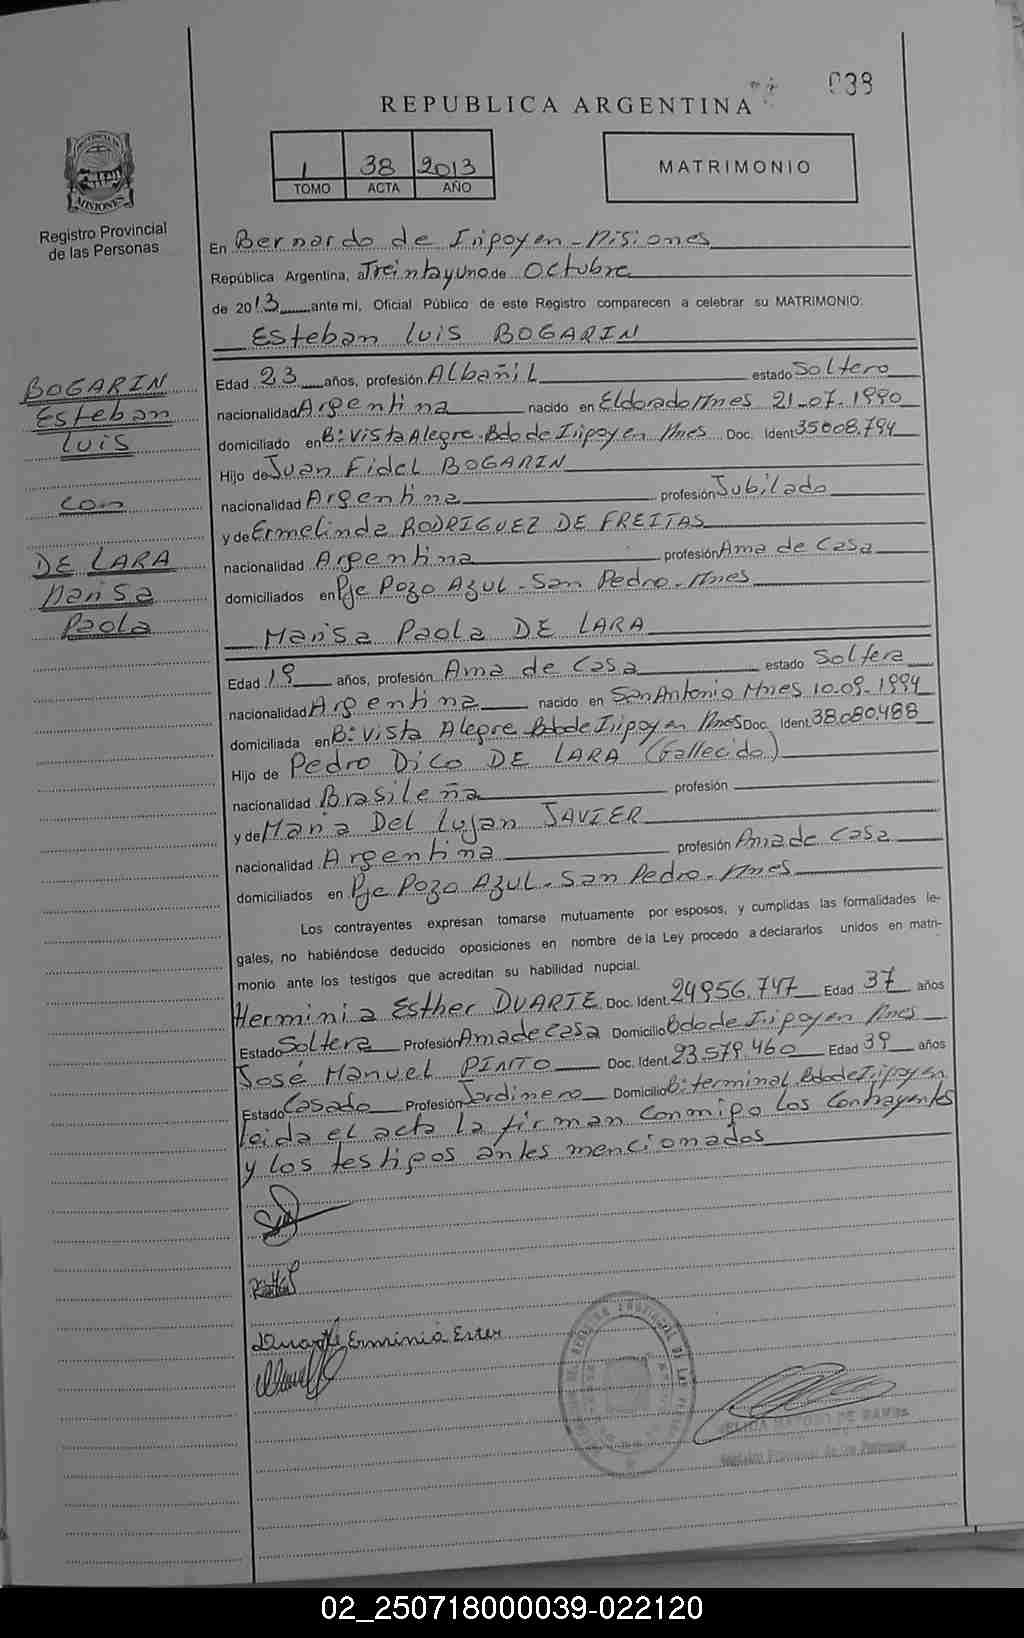 038
REPUBLICA ARGENTINA
1 38 2013
TOMO ACTA AÑO
MATRIMONIO
PROVINCIA DE
MISIONES
Registro Provincial
de las Personas
En Bernardo de Irigoyen - Misiones
República Argentina, a Treinta y uno de Octubre
de 2013 ante mi, Oficial Público de este Registro comparecen a celebrar su MATRIMONIO:
Esteban Luis BOGARIN
Edad 23 años, profesión Albañil estado Soltero
nacionalidad Argentina nacido en Eldorado Mnes 21-07-1990
domiciliado en B: Vista Alegre. Bdo de Irigoyen Mnes Doc. Ident 35008.794
Hijo de Juan Fidel BOGARIN
nacionalidad Argentina profesión Jubilado
y de Ermelinda RODRIGUEZ DE FREITAS
nacionalidad Argentina profesión Ama de Casa
domiciliados en Pje Pozo Azul - San Pedro - Mnes
Marisa Paola DE LARA
Edad 19 años, profesión Ama de Casa estado Soltera
nacionalidad Argentina nacido en San Antonio Mnes 10.09.1994
domiciliada en B: Vista Alegre Bdo de Irigoyen Mnes Doc. Ident. 38.080.488
Hijo de Pedro Dico DE LARA (Fallecido)
nacionalidad Brasileña profesión
y de Maria Del Lujan JAVIER
nacionalidad Argentina profesión Ama de Casa
domiciliados en Pje Pozo Azul - San Pedro - Mnes
Los contrayentes expresan tomarse mutuamente por esposos, y cumplidas las formalidades le-
gales, no habiéndose deducido oposiciones en nombre de la Ley procedo a declararlos unidos en matri-
monio ante los testigos que acreditan su habilidad nupcial.
Herminia Esther DUARTE Doc. Ident. 24956.747 Edad 37 años
Estado Soltera Profesión Ama de casa Domicilio Bdo de Irigoyen Mnes
José Manuel PINTO Doc. Ident. 23.579.460 Edad 39 años
Estado Casado Profesión Jardinero Domicilio B: terminal Bdo de Irigoyen
leida el acta la firman conmigo los Contrayentes
y los testigos antes mencionados
Duarte Erminia Ester
BOGARIN
Esteban
Luis
con
DE LARA
Marisa
Paola
02_250718000039-022120